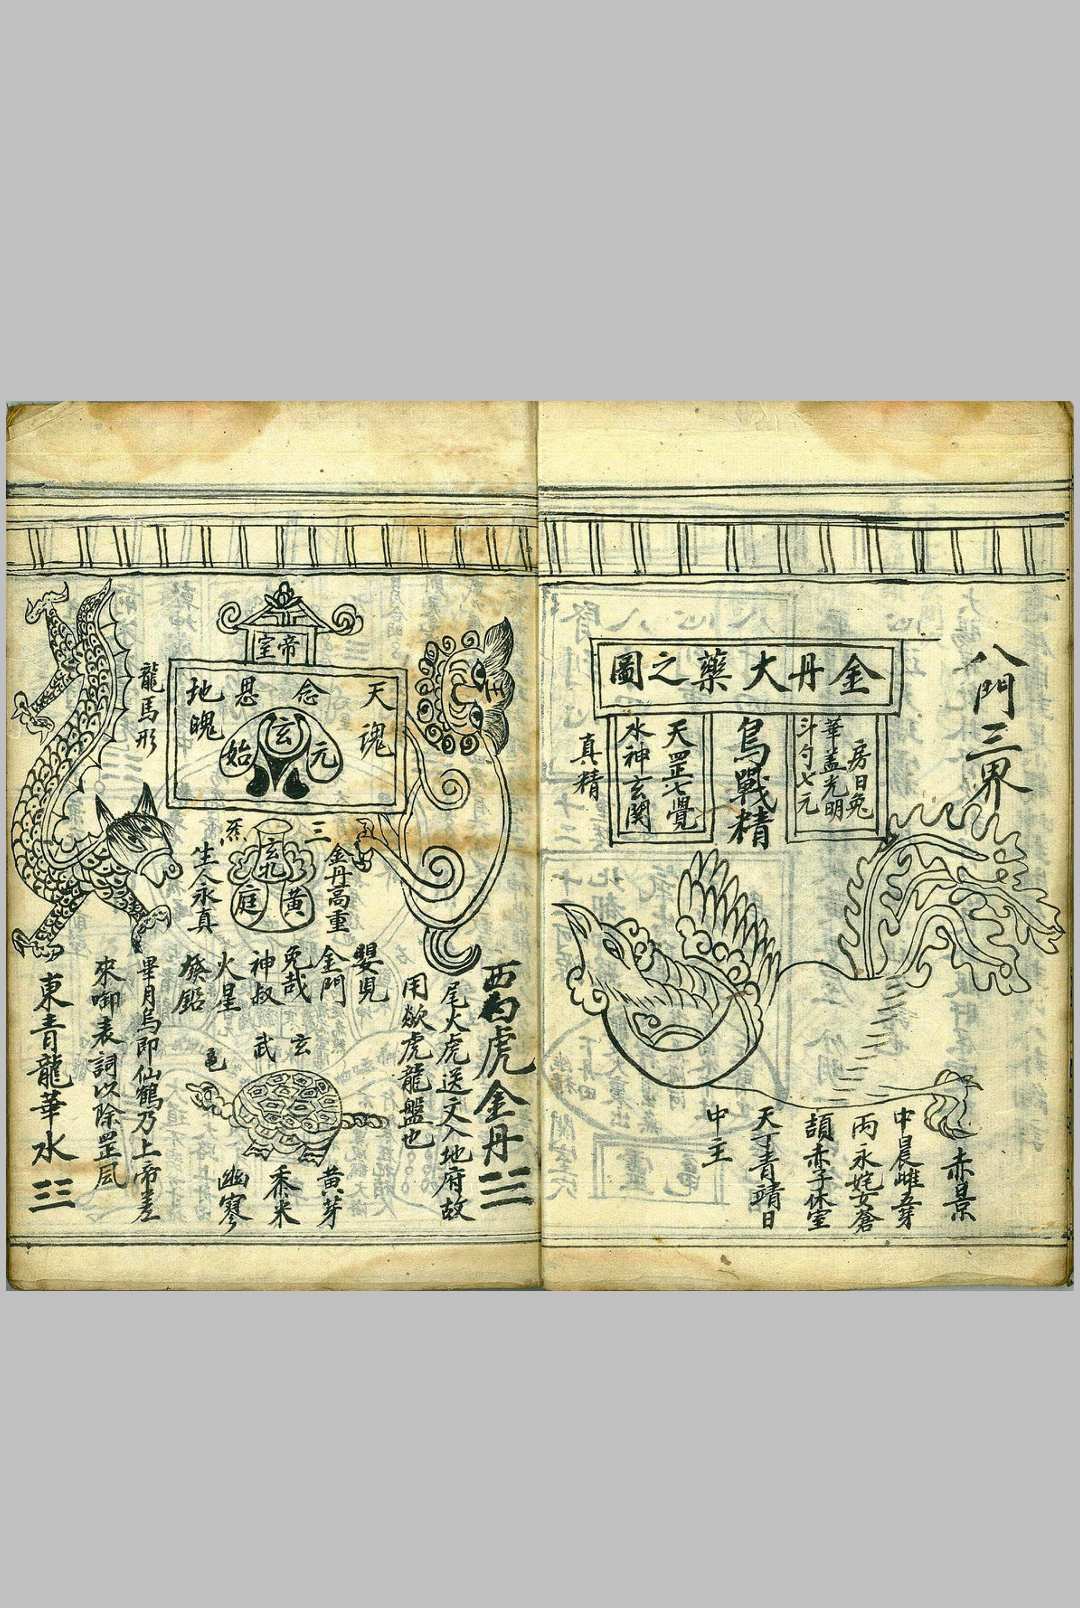 八門三界
金丹大藥之圖
房日兔
華蓋光明
斗勺七元
烏戰精
天罡七覺
水神玄関
真精
赤景
中晨雌五芽
丙永姹女滄
頡赤子休室
天丁青靖日
中主
西白虎金丹三
尾火虎送文入地府故
用欲虎龍盤也
帝室
天魂
念
思
地魄
元
玄
始
三
炁
玄孔
黃
庭
金丹高重
生人永真
嬰兒
金門
兔哉
神叔
火星
癸鉛
玄
武
龜
黃芽
黍米
幽寥
龍馬形
畢月烏即仙鶴乃上帝差
來啣表詞以除罡風
東青龍華水三